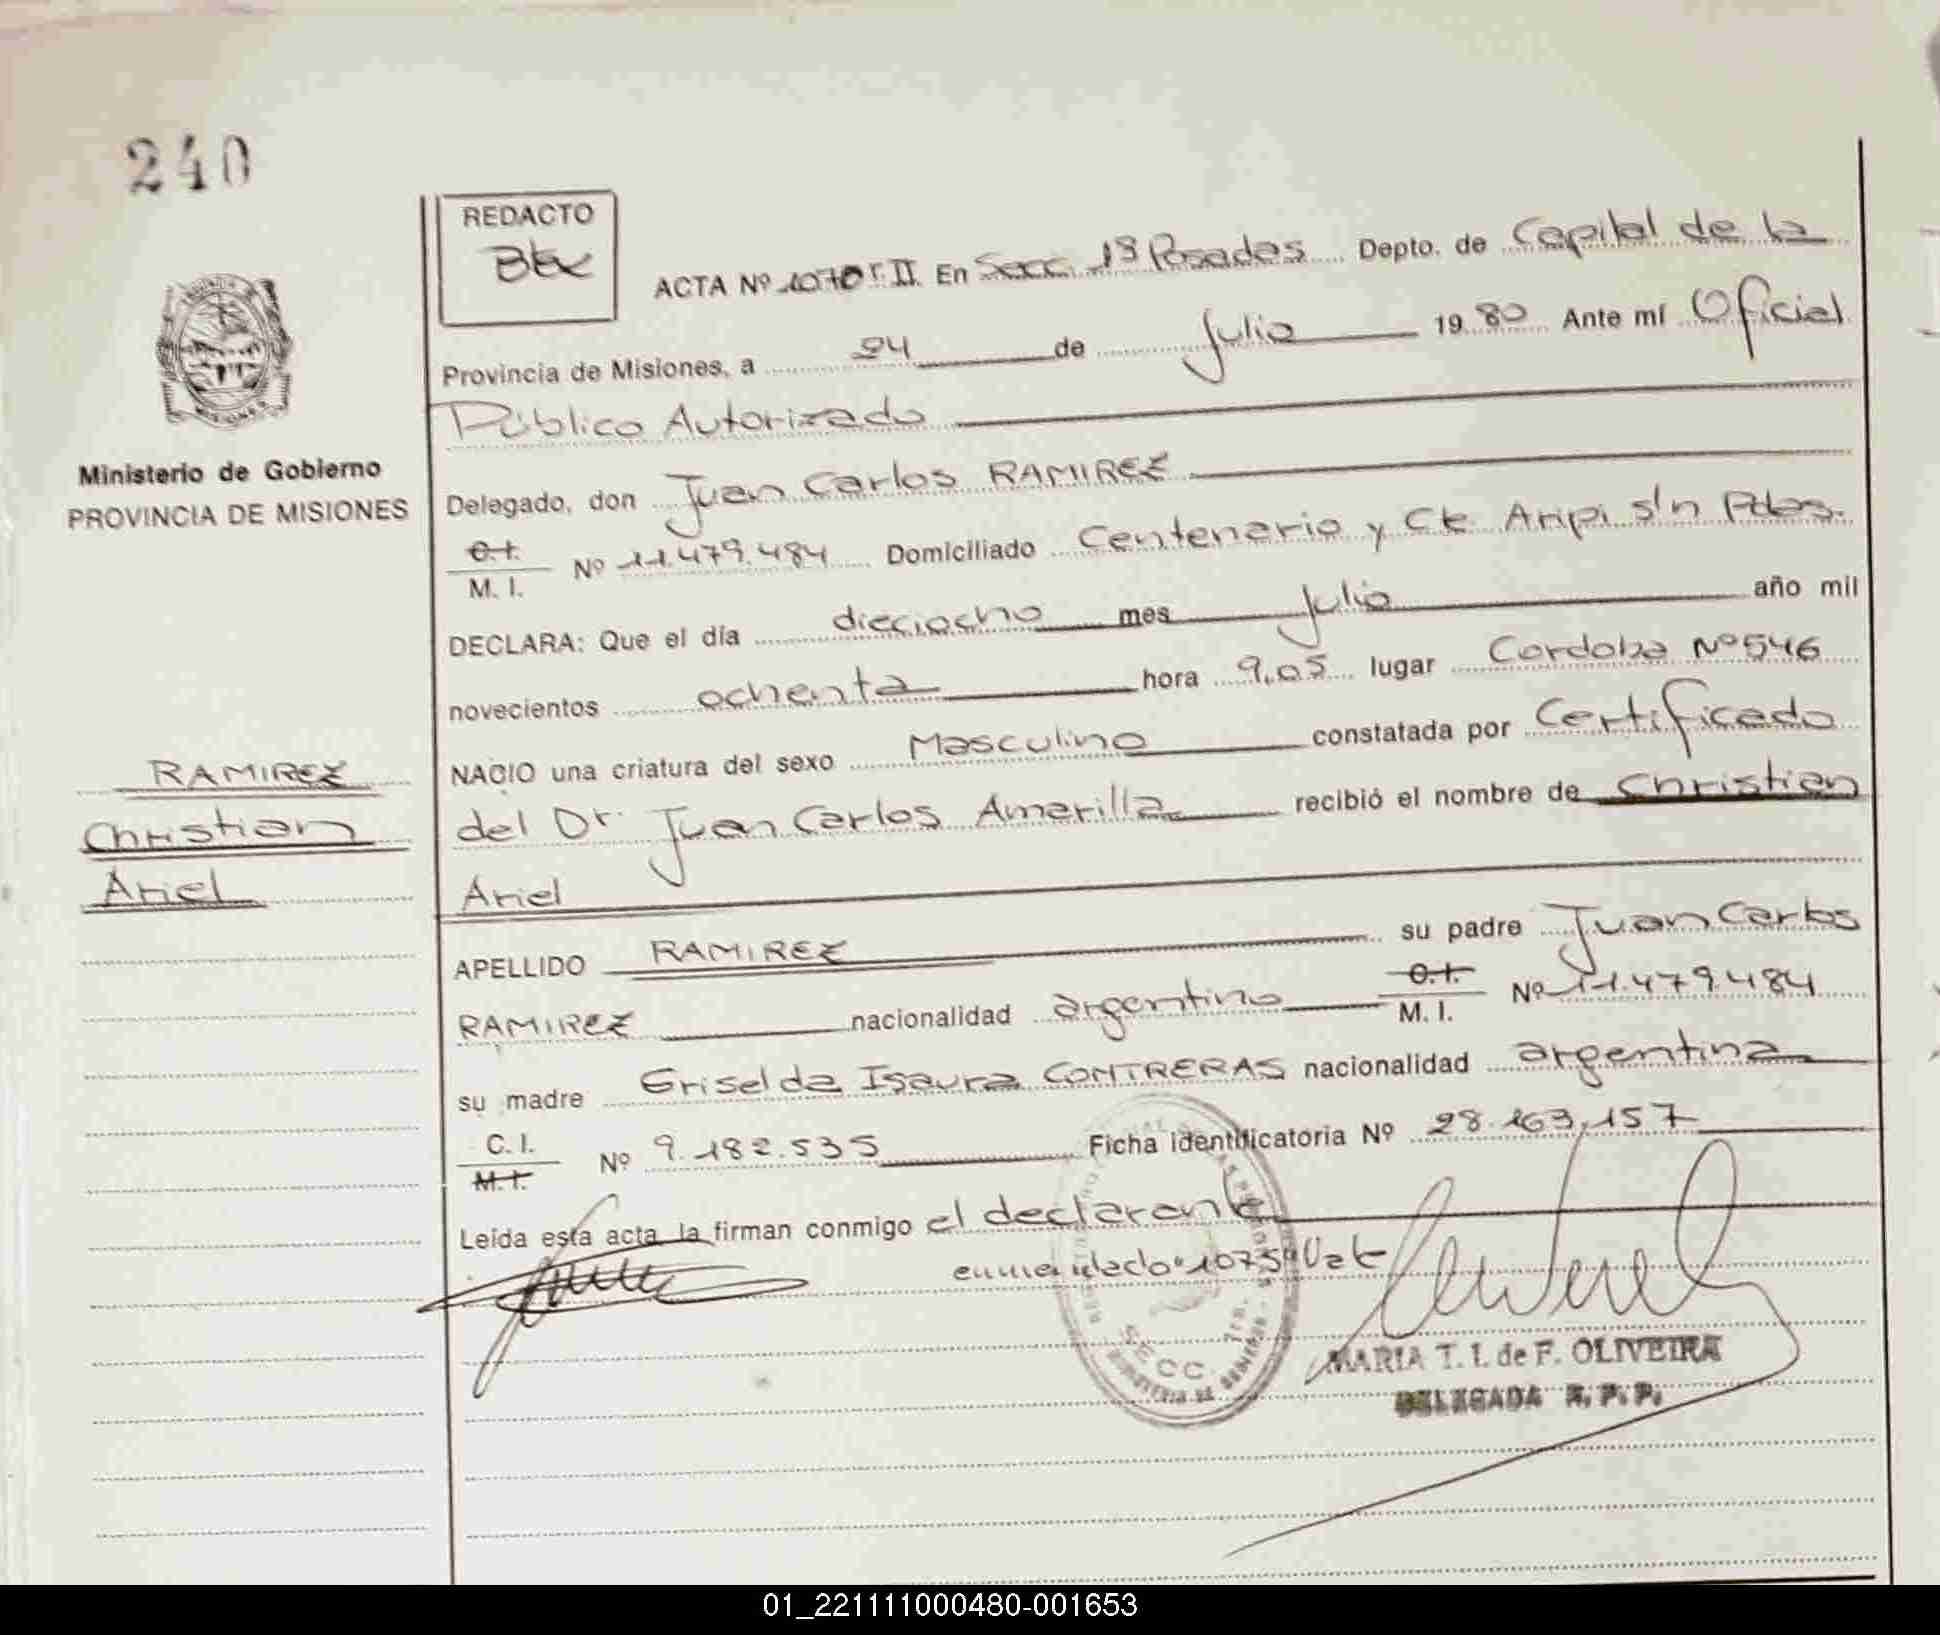 240
REDACTO
ACTA Nº T. II. En Secc. 1ª Posadas Depto. de Capital de la
Provincia de Misiones, a 24 de Julio 1980 Ante mí Oficial
Público Autorizado
Ministerio de Gobierno
PROVINCIA DE MISIONES
Delegado, don Juan Carlos RAMIREZ
C.I.
M. I. Nº 11.479.484 Domiciliado Centenario y Cte Aripi s/n Pdas.
DECLARA: Que el día dieciocho mes Julio año mil
novecientos ochenta hora 9,05 lugar Cordoba Nº 546
NACIO una criatura del sexo Masculino constatada por Certificado
del Dr. Juan Carlos Amarilla recibió el nombre de Christian
Ariel
RAMIREZ
Christian
Ariel
APELLIDO RAMIREZ su padre Juan Carlos
RAMIREZ nacionalidad argentino C.I.
M. I. Nº 11.479.484
su madre Griselda Isaura CONTRERAS nacionalidad argentina
C. I.
M.I. Nº 9.182.535 Ficha identificatoria Nº 28.163.157
Leída esta acta la firman conmigo el declarante
enmendado "1075" Vale
SECC. 1ra.
MINISTERIO DE GOBIERNO
MARIA T. I. de F. OLIVEIRA
DELEGADA R. P. P.
01_221111000480-001653